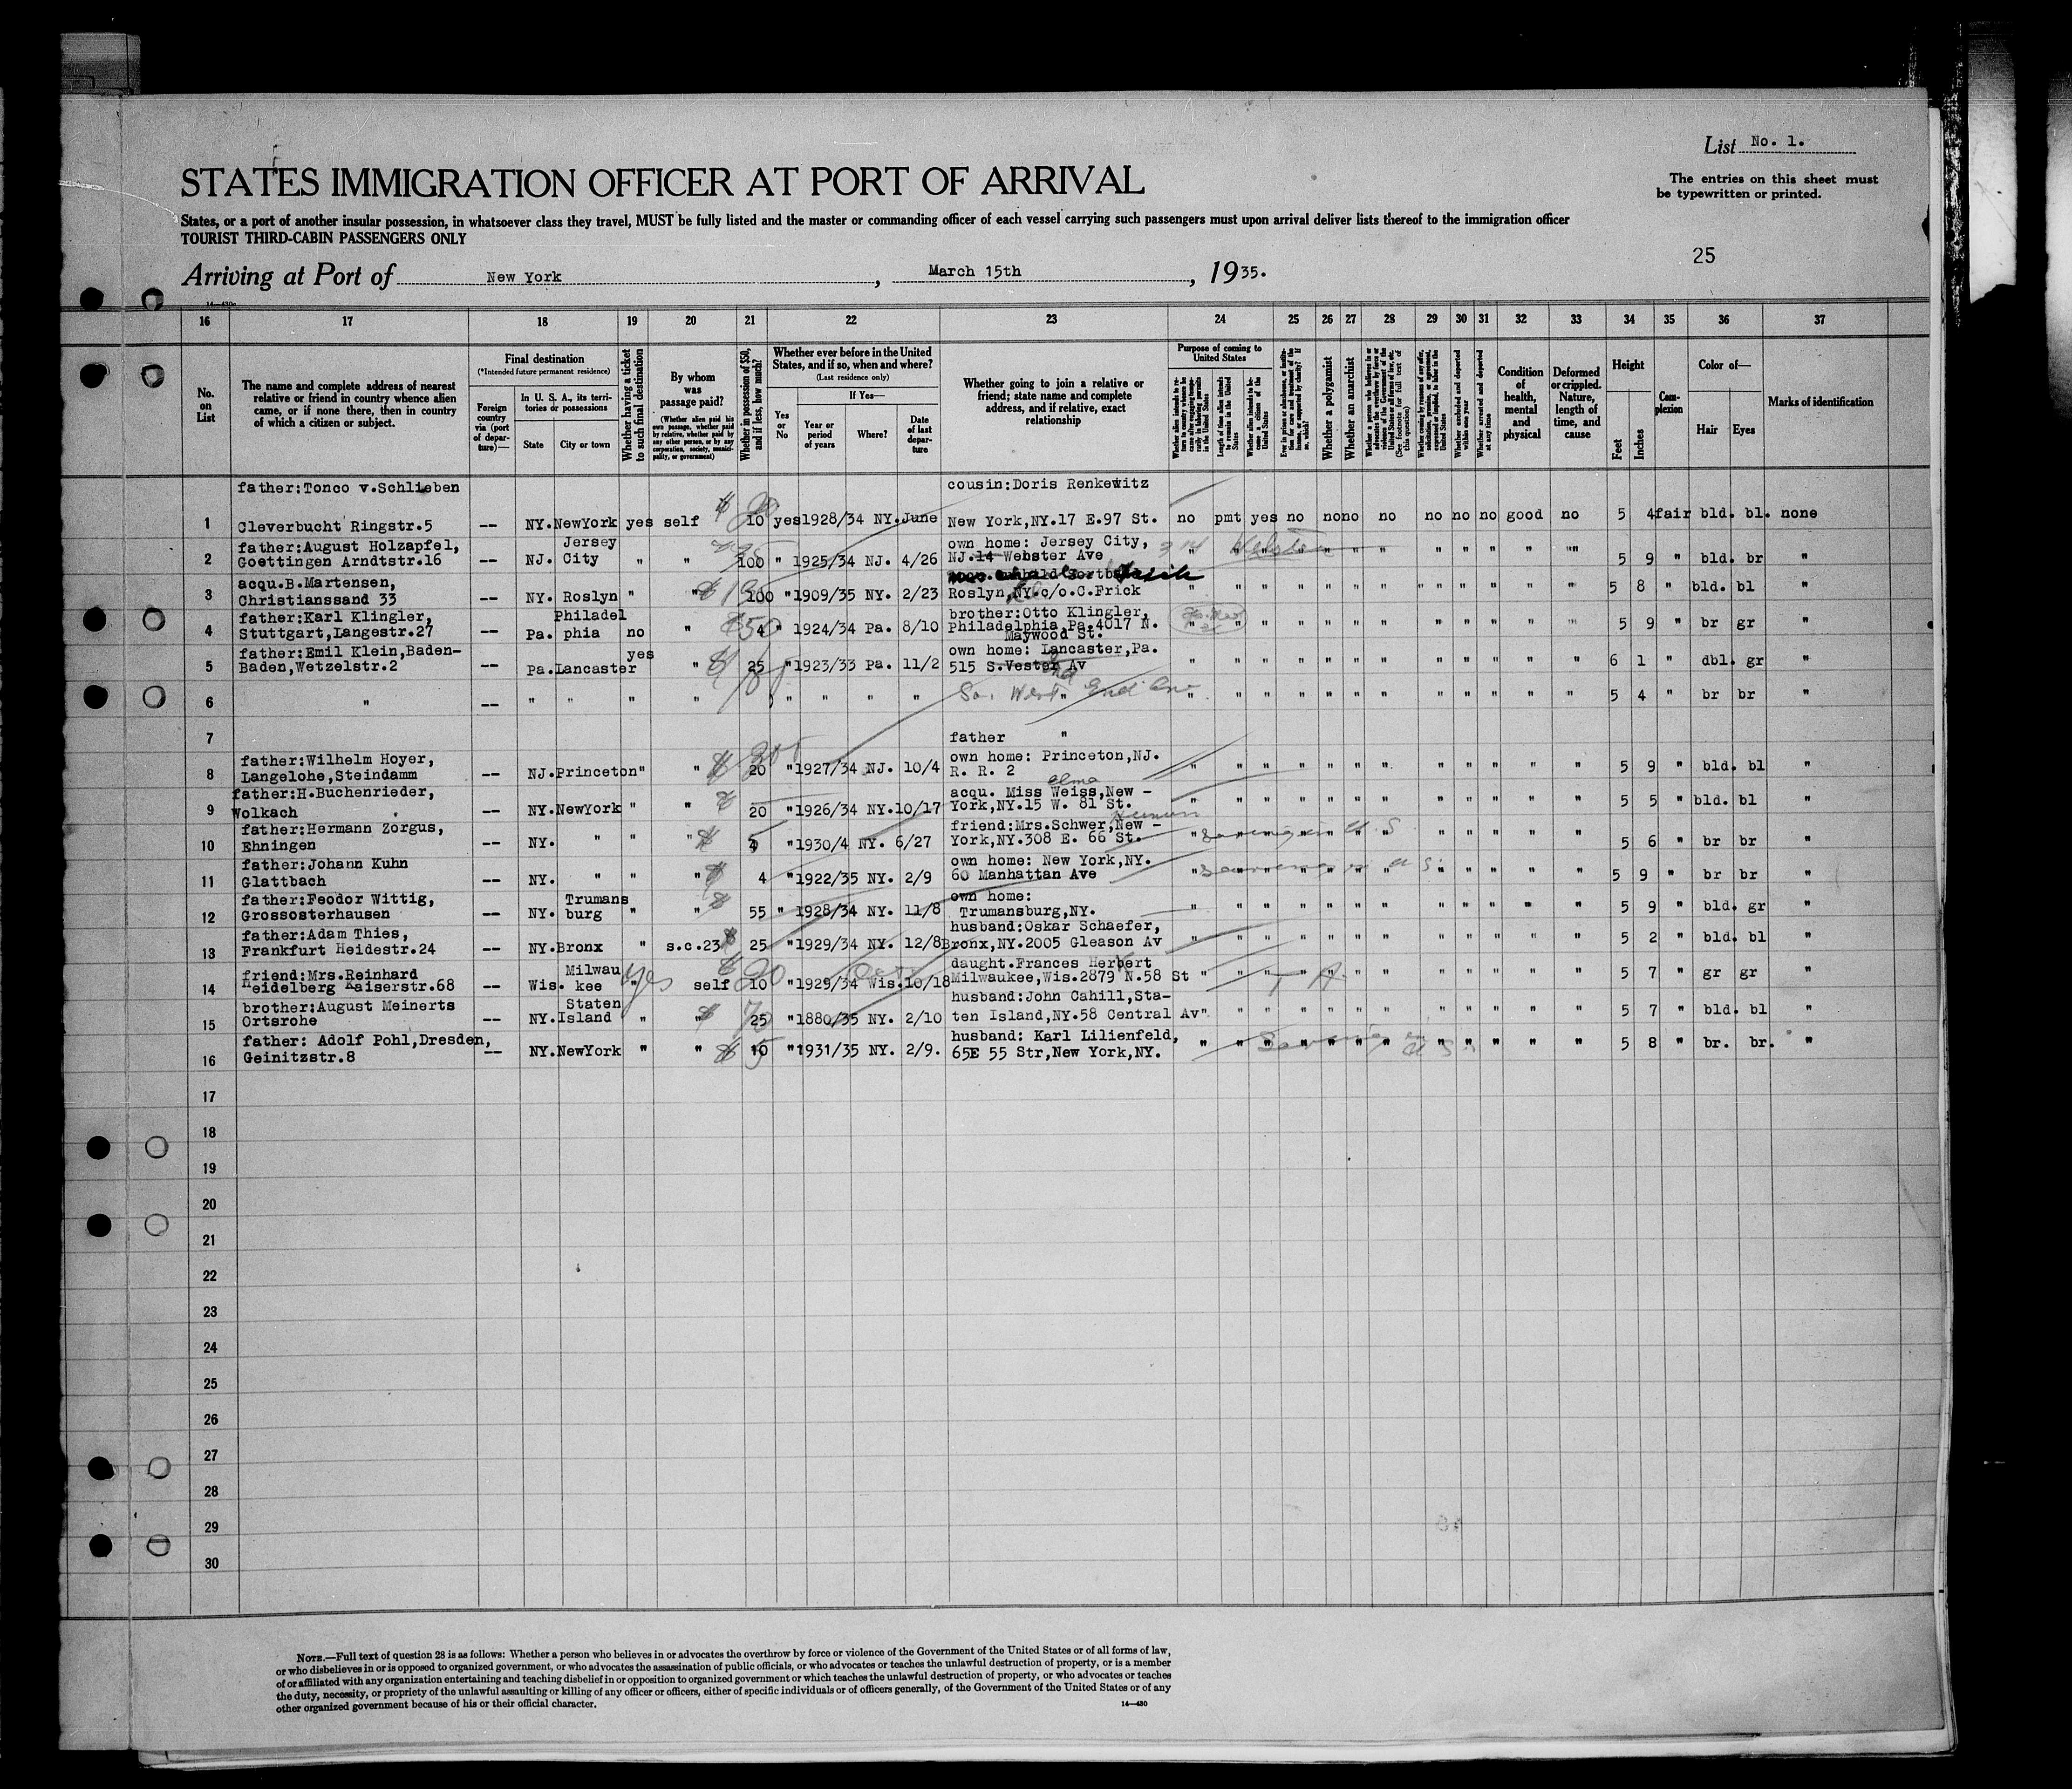 List No. 1.
STATES IMMIGRATION OFFICER AT PORT OF ARRIVAL
The entries on this sheet must
be typewritten or printed.
States, or a port of another insular possession, in whatsoever class they travel, MUST be fully listed and the master or commanding officer of each vessel carrying such passengers must upon arrival deliver lists thereof to the immigration officer
TOURIST THIRD-CABIN PASSENGERS ONLY
25
Arriving at Port of New York, March 15th, 1935.
16 17 18 19 20 21 22 23 24 25 26 27 28 29 30 31 32 33 34 35 36 37
No. on List
The name and complete address of nearest relative or friend in country whence alien came, or if none there, then in country of which a citizen or subject.
Final destination
(*Intended future permanent residence)
Foreign country via (port of departure)—
In U. S. A., its territories or possessions
State
City or town
Whether having a ticket to such final destination
By whom was passage paid?
(Whether alien paid his own passage, whether paid by relative, whether paid by any other person, or by any corporation, society, municipality, or government)
Whether in possession of $50, and if less, how much?
Whether ever before in the United States, and if so, when and where?
(Last residence only)
Yes or No
If Yes—
Year or period of years
Where?
Date of last departure
Whether going to join a relative or friend; state name and complete address, and if relative, exact relationship
Purpose of coming to United States
Length of time alien intends to remain in the United States
Whether alien intends to become a citizen of the United States
Whether a polygamist
Whether an anarchist
Whether excluded and deported within one year
Whether arrested and deported at any time
Condition of health, mental and physical
Deformed or crippled. Nature, length of time, and cause
Height
Feet
Inches
Complexion
Color of—
Hair
Eyes
Marks of identification
father:Tonco v.Schlieben cousin:Doris Renkewitz
1 Cleverbucht Ringstr.5 -- NY. NewYork yes self 10 yes 1928/34 NY. June New York,NY.17 E.97 St. no pmt yes no no no no no no no good no 5 4 fair bld. bl. none
father:August Holzapfel, Jersey own home: Jersey City,
2 Goettingen Arndtstr.16 -- NJ. City " " 100 " 1925/34 NJ. 4/26 NJ.14 Webster Ave " " " " " " " " " " " " 5 9 " bld. br "
acqu.B.Martensen,
3 Christianssand 33 -- NY. Roslyn " " 100 " 1909/35 NY. 2/23 Roslyn,NY.c/o.C.Frick " " " " " " " " " " " " 5 8 " bld. bl "
father:Karl Klingler, Philadel brother:Otto Klingler,
4 Stuttgart,Langestr.27 -- Pa. phia no " 4 " 1924/34 Pa. 8/10 Philadelphia,Pa.4017 N.
Maywood St. " " " " " " " " " " " " 5 9 " br gr "
father:Emil Klein,Baden- yes own home: Lancaster,Pa.
5 Baden,Wetzelstr.2 -- Pa. Lancaster " 25 " 1923/33 Pa. 11/2 515 S.Vester Av " " " " " " " " " " " " 6 1 " dbl. gr "
6 " -- " " " " " " " " So. West End Ave " " " " " " " " " " " " 5 4 " br br "
7 father "
father:Wilhelm Hoyer, own home: Princeton,NJ.
8 Langelohe,Steindamm -- NJ. Princeton " " 20 " 1927/34 NJ. 10/4 R. R. 2 " " " " " " " " " " " " 5 9 " bld. bl "
father:H.Buchenrieder, acqu. Miss Weiss,New -
9 Wolkach -- NY. NewYork " " 20 " 1926/34 NY. 10/17 York,NY.15 W. 81 St. " " " " " " " " " " " " 5 5 " bld. bl "
father:Hermann Zorgus, friend:Mrs.Schwer,New -
10 Ehningen -- NY. " " " " 1930/4 NY. 6/27 York,NY.308 E. 66 St. " " " " " " " " " " " " 5 6 " br br "
father:Johann Kuhn own home: New York,NY.
11 Glattbach -- NY. " " " 4 " 1922/35 NY. 2/9 60 Manhattan Ave " " " " " " " " " " " " 5 9 " br br "
father:Feodor Wittig, Trumans own home:
12 Grossosterhausen -- NY. burg " " 55 " 1928/34 NY. 11/8 Trumansburg,NY. " " " " " " " " " " " " 5 9 " bld. gr "
father:Adam Thies, husband:Oskar Schaefer,
13 Frankfurt Heidestr.24 -- NY. Bronx " s.c.23 25 " 1929/34 NY. 12/8 Bronx,NY.2005 Gleason Av " " " " " " " " " " " " 5 2 " bld. bl "
friend:Mrs.Reinhard Milwau daught.Frances Herbert
14 Heidelberg Kaiserstr.68 -- Wis. kee " yes self 10 " 1929/34 Wis. 10/18 Milwaukee,Wis.2879 N.58 St " " " " " " " " " " " " 5 7 " gr gr "
brother:August Meinerts Staten husband:John Cahill,Sta-
15 Ortsrohe -- NY. Island " " 25 " 1880/35 NY. 2/10 ten Island,NY.58 Central Av " " " " " " " " " " " " 5 7 " bld. bl "
father: Adolf Pohl,Dresden, husband: Karl Lilienfeld,
16 Geinitzstr.8 -- NY. NewYork " " 10 " 1931/35 NY. 2/9. 65E 55 Str,New York,NY. " " " " " " " " " " " " 5 8 " br. br. "
17
18
19
20
21
22
23
24
25
26
27
28
29
30
NOTE.—Full text of question 28 is as follows: Whether a person who believes in or advocates the overthrow by force or violence of the Government of the United States or of all forms of law,
or who disbelieves in or is opposed to organized government, or who advocates the assassination of public officials, or who advocates or teaches the unlawful destruction of property, or is a member
of or affiliated with any organization entertaining and teaching disbelief in or opposition to organized government or which teaches the unlawful destruction of property, or who advocates or teaches
the duty, necessity, or propriety of the unlawful assaulting or killing of any officer or officers, either of specific individuals or of officers generally, of the Government of the United States or of any
other organized government because of his or their official character.
14—430